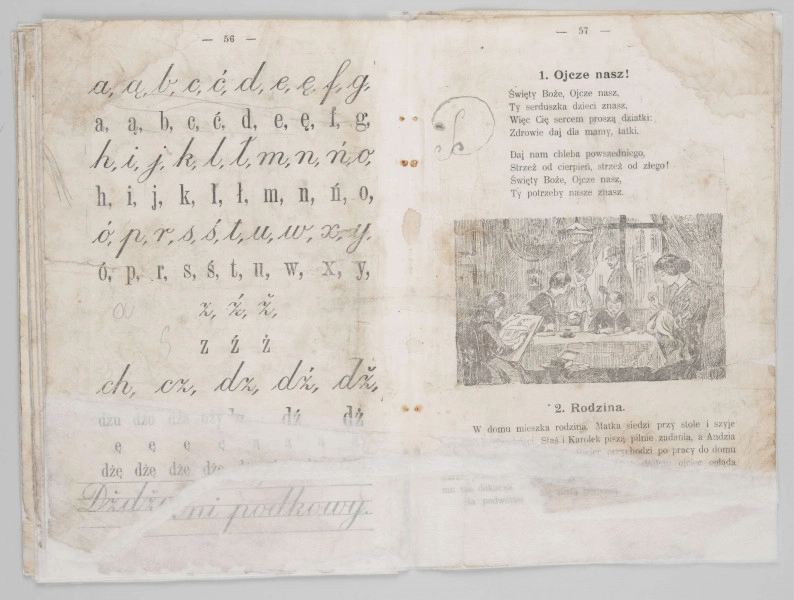 — 56 —
a, ą, b, c, ć, d, e, ę, f, g,
a, ą, b, c, ć, d, e, ę, f, g,
h, i, j, k, l, ł, m, n, ń, o,
h, i, j, k, l, ł, m, n, ń, o,
ó, p, r, s, ś, t, u, w, x, y,
ó, p, r, s, ś, t, u, w, x, y,
z, ź, ż,
z ź ż
ch, cz, dz, dź, dż,
dź dż
ę ę ę ę
dżę dżę
podkowy.
— 57 —
1. Ojcze nasz!
Święty Boże, Ojcze nasz,
Ty serduszka dzieci znasz,
Więc Cię sercem proszą dziatki:
Zdrowie daj dla mamy, tatki.
Daj nam chleba powszedniego,
Strzeż od cierpień, strzeż od złego!
Święty Boże, Ojcze nasz,
Ty potrzeby nasze znasz.
2. Rodzina.
W domu mieszka rodzina. Matka siedzi przy stole i szyje
Staś i Karolek piszą pilnie zadania, a Andzia
przychodzi po pracy do domu
ojciec ogląda